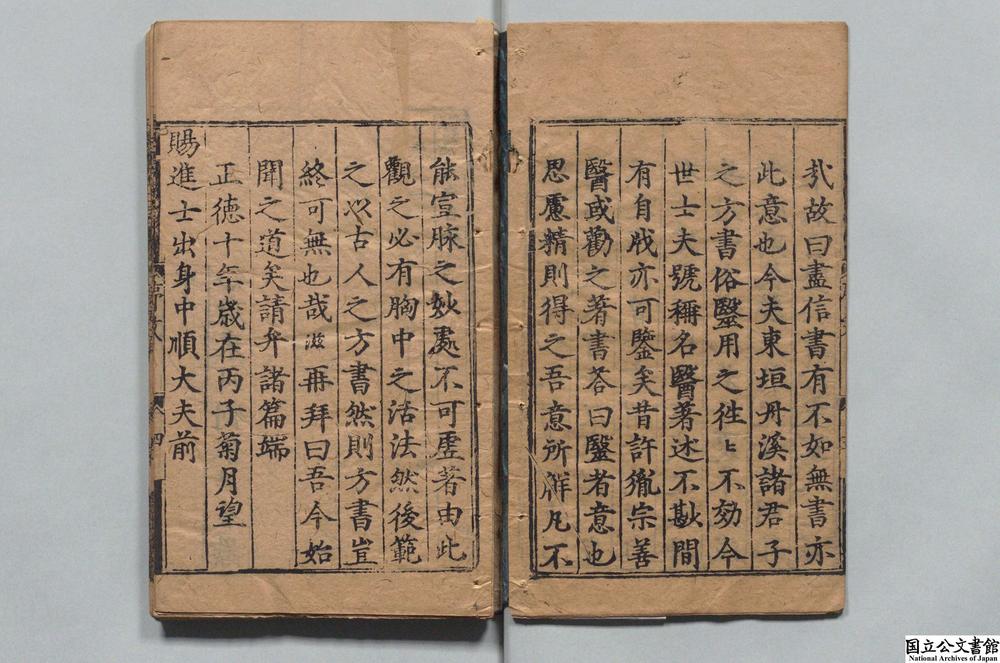 哉故曰盡信書有不如無書亦
此意也今夫東垣丹溪諸君子
之方書俗醫用之徃〻不効今
世士夫號稱名醫著述不尠間
有自戕亦可鑒矣昔許胤宗善
醫或勸之著書荅曰醫者意也
思慮精則得之吾意所解凡不
能宣脉之妙處不可虚著由此
觀之必有胸中之活法然後範
之以古人之方書然則方書豈
終可無也哉滋再拜曰吾今始
聞之道矣請弁諸篇端
正徳十年歳在丙子菊月望
賜進士出身中順大夫前
四
国立公文書館
National Archives of Japan